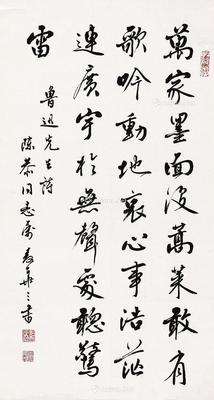 萬家墨面沒蒿萊敢有
歌吟動地哀心事浩茫
連廣宇於無聲處聽驚
雷
魯迅先生詩
陳恭同志屬
書